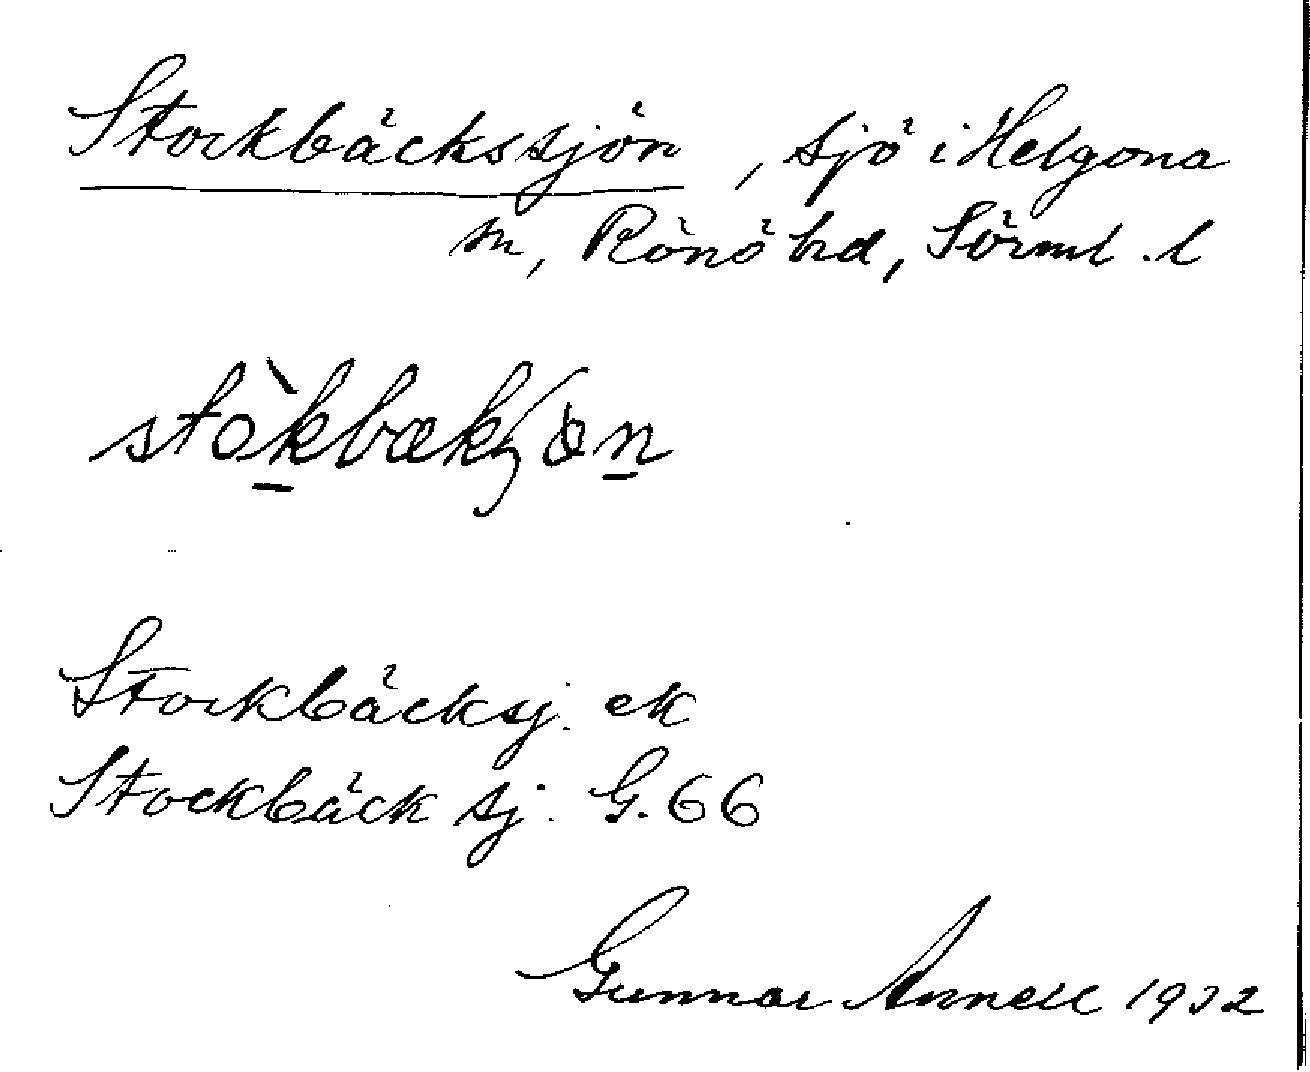 Stockbäckssjön, sjö i Helgona
sn, Rönö hd, Sörml. l
Stockbäcksj. ek
Stockbäck sj. G. 66
Gunnar Annell 1932